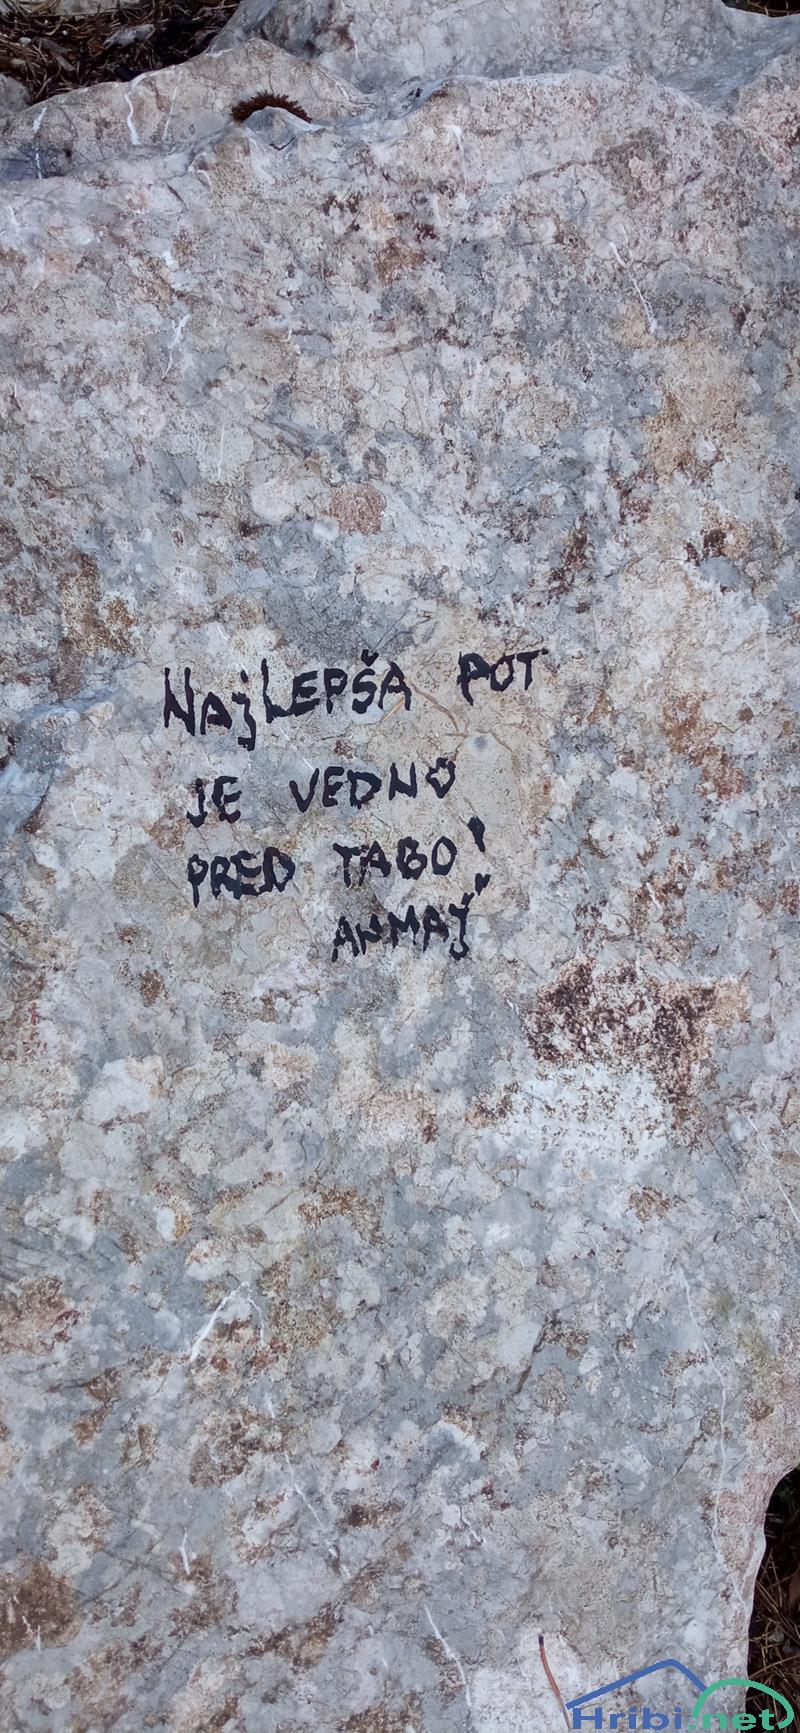 NAJLEPŠA POT
JE VEDNO
PRED TABO!
Hribi.net